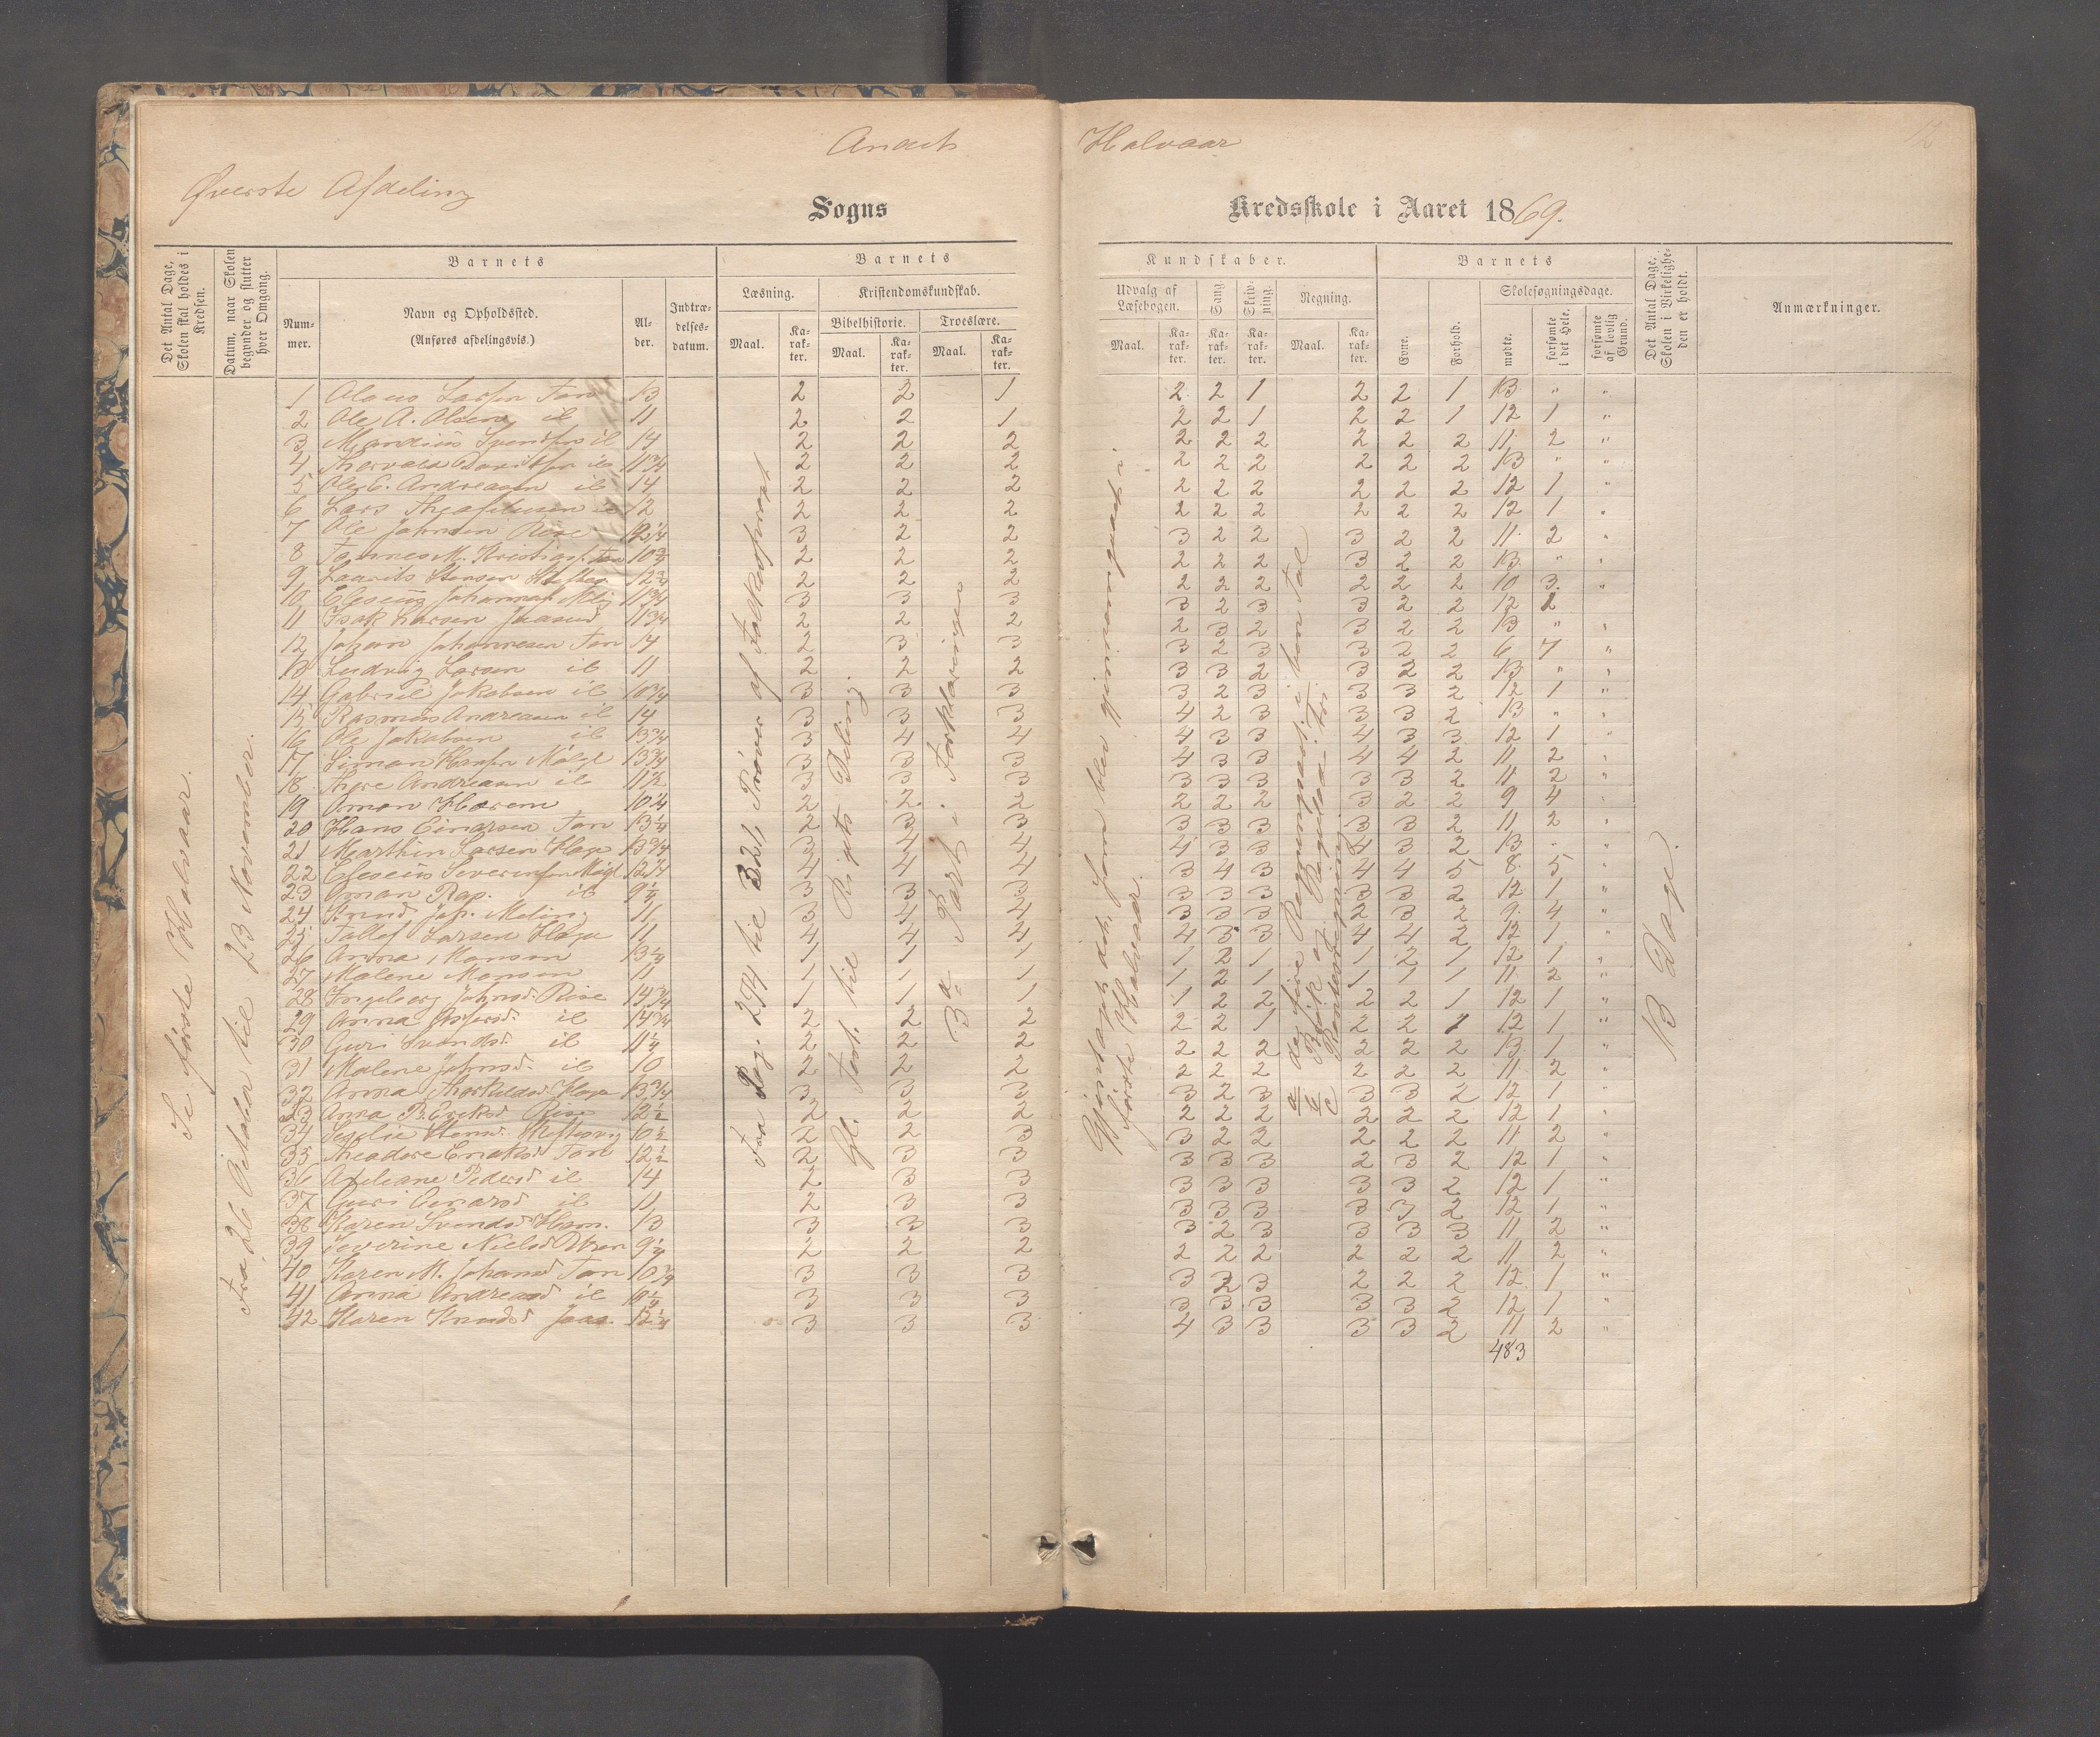 Andet Halvaar
12
Øverste Afdeling
Sogns Kredsskole i Aaret 1869.
Det Antal Dage, Skolen skal holdes i Kredsen.
Datum, naar Skolen begynder og slutter hver Omgang.
Barnets
Nummer.
Navn og Opholdssted.
(Anføres afdelingsvis.)
Alder.
Indtrædelsesdatum.
Barnets
Læsning.
Kristendomskundskab.
Bibelhistorie.
Troeslære.
Maal.
Karakter.
Maal.
Karakter.
Maal.
Karakter.
Kundskaber.
Udvalg af Læsebogen.
Sang.
Skrivning.
Regning.
Maal.
Karakter.
Karakter.
Karakter.
Maal.
Karakter.
Barnets
Evne.
Forhold.
Skolesøgningsdage.
mødte.
forsømte i det Hele.
forsømte af lovlig Grund.
Det Antal Dage, Skolen i Virkeligheden er holdt.
Anmærkninger.
Se første Halvaar.
Fra 26 Oktober til 23 November.
Fra Pag. 274 til 321, Prøver af Folkesproget
til Rigets Deling.
3die Part i Forklaringen
Gjentaget det, som blev gjennemgaaet i første Halvaar.
a de fire Regningsart. i ben. Tal
b Brøk og Reguladetri
c Rentesregning
13 Dage
1 Olaus Larsen Tan 13 2 2 1 2 2 1 2 2 1 13 " "
2 Ole A. Olsen il 11 2 2 1 2 2 1 2 2 1 12 1 "
3 Mandius Svendsen il 14 2 2 2 2 2 2 2 2 2 11 2 "
4 Thorvald Davidsen il 11 3/4 2 2 2 2 2 2 2 2 2 13 " "
5 Ole C. Andreasen il 14 2 2 2 2 2 2 2 2 2 12 1 "
6 Lars il 12 2 2 2 2 2 2 2 2 2 12 1 "
7 Ole Johnsen Risø 12 1/4 3 2 2 3 2 2 3 2 2 11 2 "
8 Tan 10 3/4 2 2 2 2 2 2 3 2 2 13 " "
9 Laurits Stensen 12 3/4 2 2 2 2 2 2 2 2 2 10 3 "
10 Eleseus Johannes. Meling 11 3/4 3 3 3 3 2 3 3 2 2 12 1
11 Isak Larsen Jaasund 11 3/4 2 2 2 2 3 2 3 2 2 13 " "
12 Johan Johannesen Tan 14 2 3 3 3 2 3 3 2 2 6 7 "
13 Ludvig Larsen il 11 2 2 2 3 3 2 3 2 2 13 " "
14 Gabriel Jakobsen il 10 3/4 3 3 3 3 2 3 3 3 2 12 1 "
15 Rasmus Andreasen il 14 3 3 3 4 2 3 3 3 2 13 " "
16 Ole Jakobsen il 13 3/4 3 4 4 4 3 3 4 3 3 12 1 "
17 Simon Hansen 13 3/4 3 3 3 4 3 3 4 4 2 11 2 "
18 Thore Andreasen il 11 1/2 3 3 3 3 3 3 3 3 2 11 2 "
19 Oman Harem 10 1/4 2 2 2 2 2 2 3 2 2 9 4 "
20 Hans Einarsen Tan 13 1/4 2 3 3 3 3 3 3 3 2 11 2 "
21 Marthin Larsen Hage 13 3/4 3 4 4 4 3 3 4 3 2 13 " "
22 Eleseus Severinsen 12 1/4 4 4 4 3 4 3 4 4 5 8 5 "
23 Oman Rap. il 9 1/2 3 3 3 3 3 3 3 3 2 12 1 "
24 Knud Meling 11 3 4 4 3 3 3 2 3 2 9 4 "
25 Tollef Larsen Hage 11 4 4 4 4 3 3 4 4 2 12 1 "
26 Anna Monsen 13 1/4 1 1 1 1 2 1 1 2 1 12 1 "
27 Malene Monsen 11 1 1 1 1 2 1 1 1 1 11 2 "
28 Ingeborg Johnsd. Risø 14 3/4 1 1 1 1 2 2 2 2 1 12 1 "
29 Anna il 14 3/4 2 2 2 2 2 1 2 2 1 12 1 "
30 Guri Svendsd. il 11 1/4 2 2 2 2 2 2 2 2 2 13 1 "
31 Malene Johnsd. il 10 2 2 2 2 2 2 2 2 2 11 2 "
32 Anna Thorkildsd. Hage 13 3/4 3 3 3 3 2 3 3 3 2 12 1 "
33 Anna B. Eriksd. Risø 12 1/2 2 2 2 2 2 2 2 2 2 12 1 "
34 Stensd. 10 1/2 2 2 3 3 2 2 2 2 2 11 2 "
35 Theodore Eriksd. Tan 12 1/2 2 3 3 3 3 3 2 3 2 12 1 "
36 Pedersd. il 14 2 3 3 3 3 3 3 3 2 12 1 "
37 Guri Einarsd. il 11 2 3 3 3 3 3 3 3 2 12 1 "
38 Karen Svendsd. 13 3 3 3 3 2 3 3 3 3 11 2 "
39 Severine Nielsd. 9 1/4 2 2 2 2 2 2 2 2 2 11 2 "
40 Karen M. Johansd. Tan 10 3/4 3 3 3 3 2 3 2 2 2 12 1 "
41 Anna Andreasd. il 3 3 3 3 3 3 3 3 2 12 1 "
42 Karen Knudsd. Jaas. 12 1/4 3 3 3 4 3 3 3 3 2 11 2 "
483